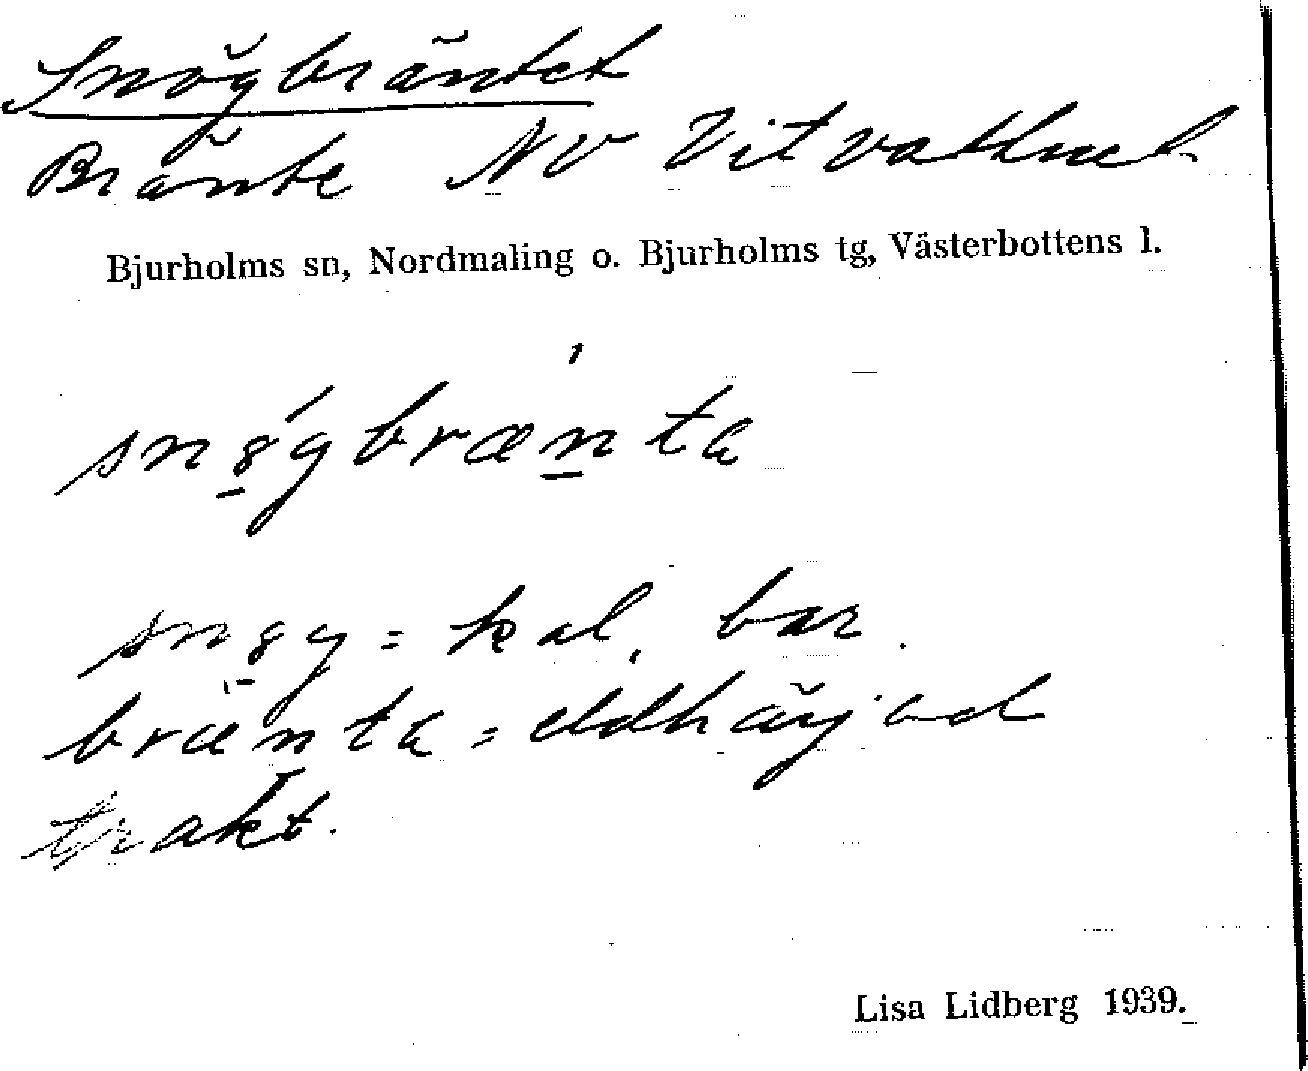 Snögbräntet
Bränte NV Vitvattnet
Bjurholms sn, Nordmaling o. Bjurholms tg, Västerbottens l.
snȣ́gbræ̀nta
snȣg = kal, bar.
brænta = eldhärjad
trakt.
Lisa Lidberg 1939.